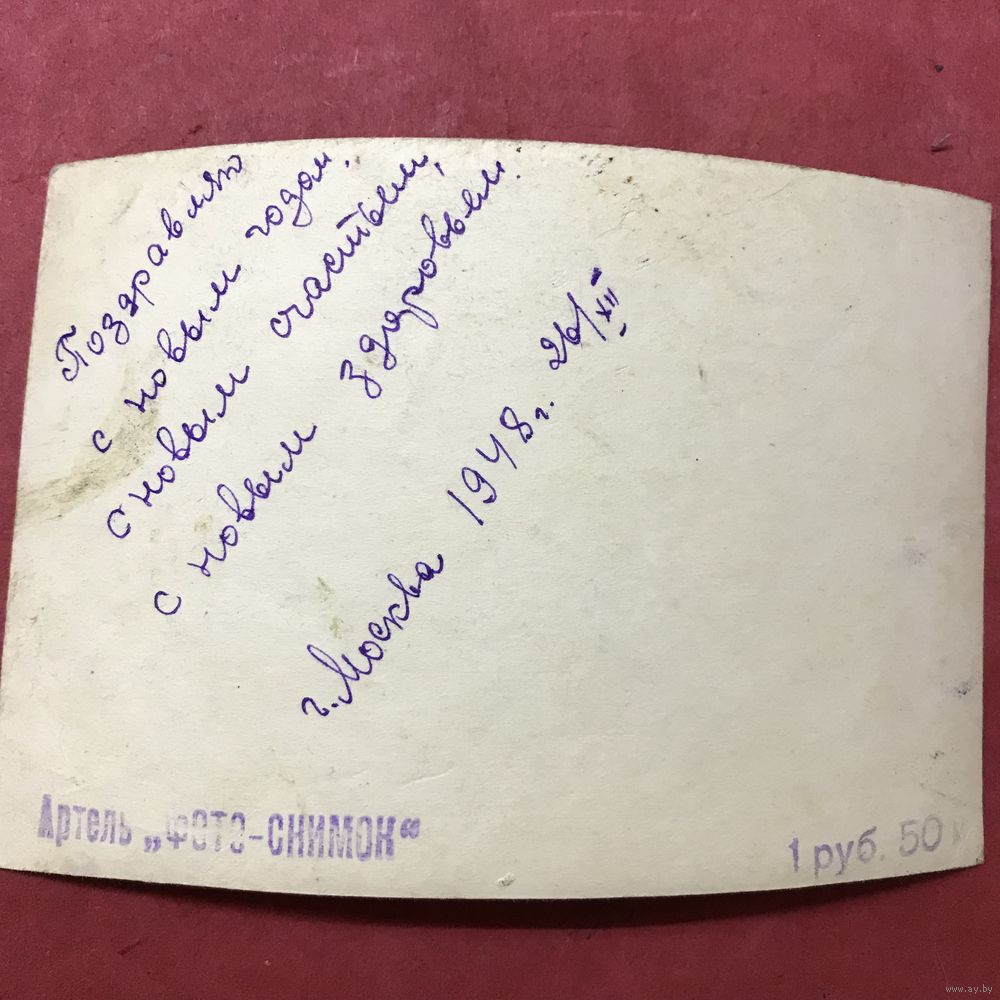 Поздравляю
с новым годом.
с новым счастьем,
с новым здоровьем.
г. Москва 1948 г. 26/XII
Артель „ФОТО-СНИМОК“
1 руб. 50 к
www.ay.by